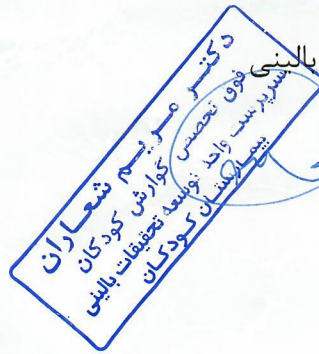 بالینی
دکتر مریم شعاران
فوق تخصص گوارش کودکان
سرپرست واحد توسعه تحقیقات بالینی
بیمارستان کودکان